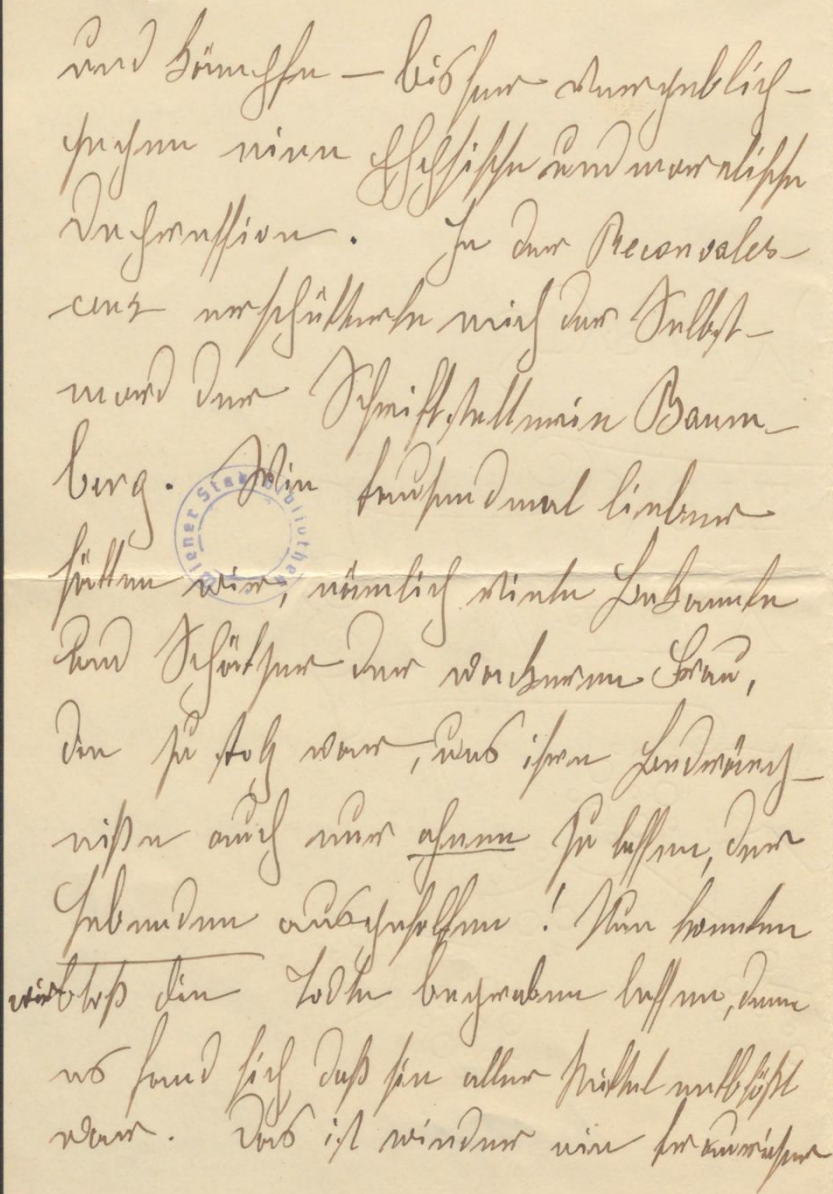 und kämpfe – bisher vergeblich –
gegen eine physische und moralische
Depression. In der Reconvales-
cenz erschütterte mich der Selbst-
mord der Schriftstellerin Baum-
berg. Wie tausendmal lieber
hätten wir, nämlich viele Bekannte
und Schätzer der wackeren Frau,
die zu stolz war, uns ihre Bedräng-
niße auch nur ahnen zu lassen, der
Lebenden ausgeholfen! Nun konnten
wir bloß die Todte begraben lassen, denn
es fand sich, daß sie aller Mittel entblößt
war. Das ist wieder ein trauriger
Wiener Stadtbibliothek